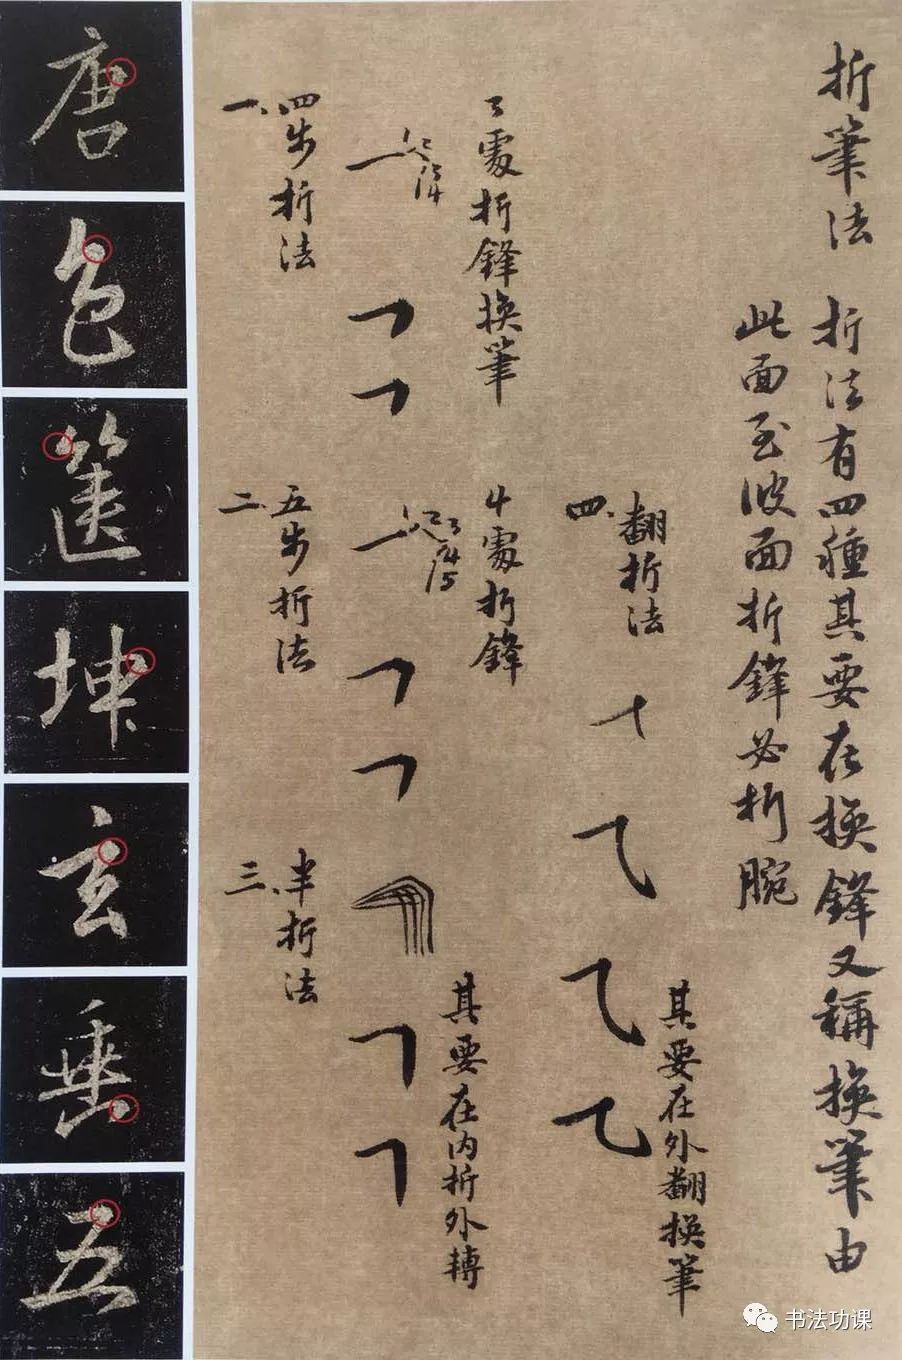 折筆法
折法有四種其要在換鋒又稱換筆由
此面至彼面折鋒必折腕
四、翻折法
其要在外翻換筆
3處折鋒換筆
4處折鋒
其要在内折外轉
一、四步折法
1 2 3 4
二、五步折法
1 2 3 4 5
三、半折法
唐
色
篋
坤
玄
垂
五
书法功课